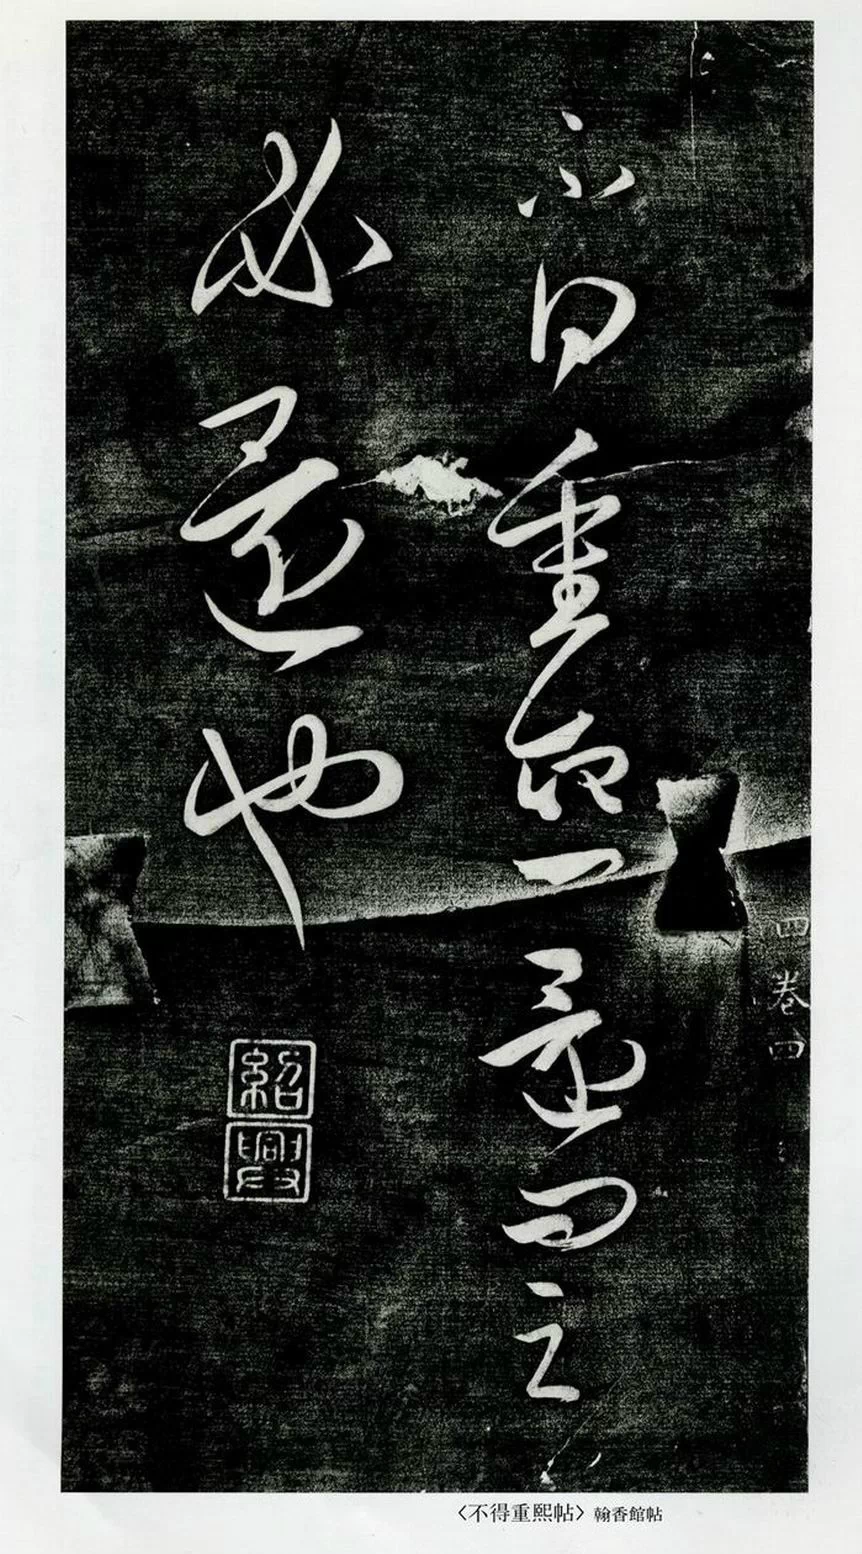 四卷四
不日重熙還面之
必還也
紹興
〈不得重熙帖〉 翰香館帖